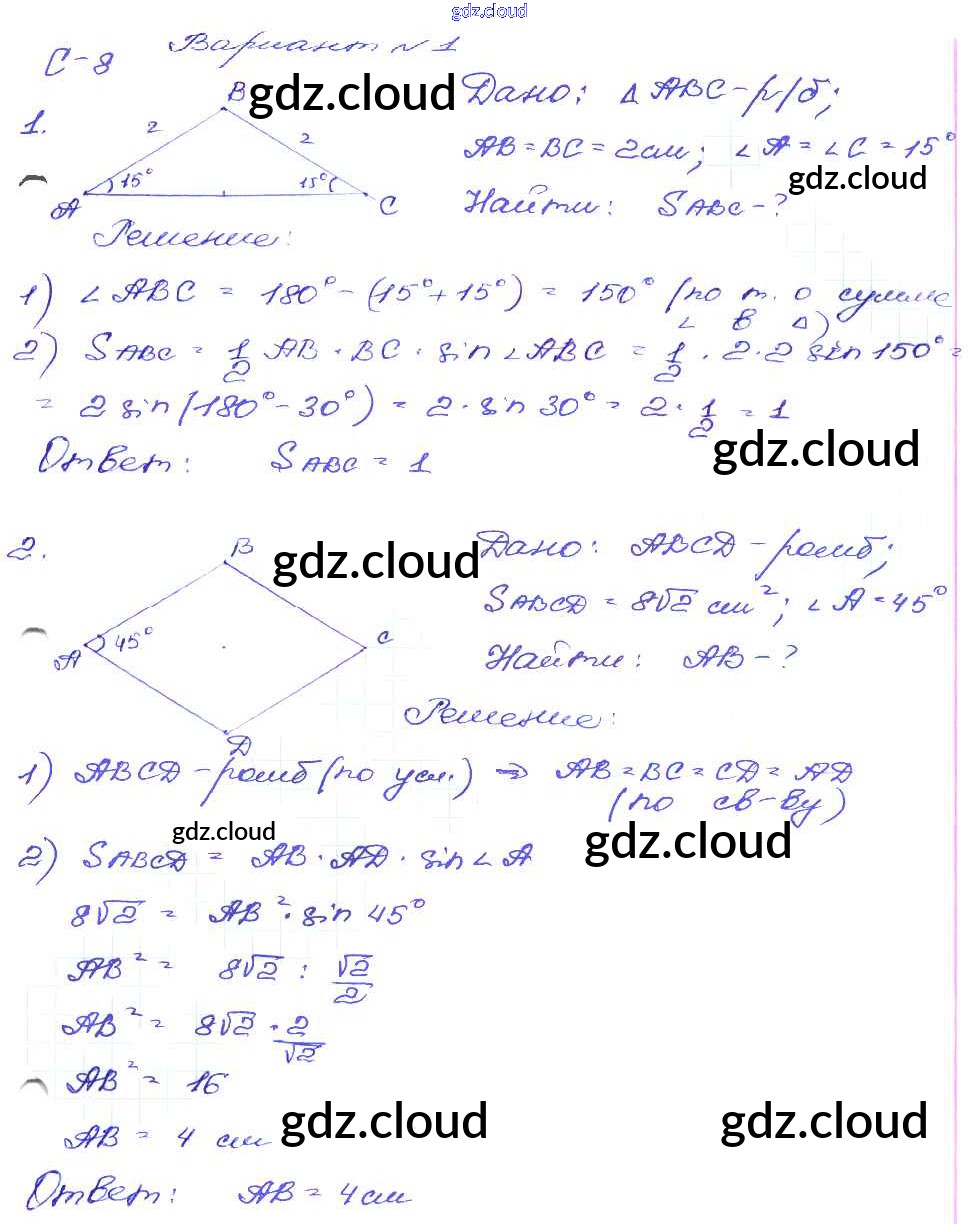 gdz.cloud
С-8 Вариант №1
1.
B
2
2
15°
15°
A
C
gdz.cloud
Дано: △ABC - р/б;
AB = BC = 2 см; ∠A = ∠C = 15°
gdz.cloud
Найти: SABC - ?
Решение:
1) ∠ABC = 180° - (15° + 15°) = 150° (по т. о сумме
∠ в △)
2) SABC = 1/2 AB · BC · sin ∠ABC = 1/2 · 2 · 2 sin 150° =
= 2 sin (180° - 30°) = 2 · sin 30° = 2 · 1/2 = 1
gdz.cloud
Ответ: SABC = 1
2.
B
45°
A
C
D
gdz.cloud
Дано: ABCD - ромб;
SABCD = 8√2 см²; ∠A = 45°
Найти: AB - ?
Решение:
1) ABCD - ромб (по усл.) ⇒ AB = BC = CD = AD
(по св-ву)
gdz.cloud
gdz.cloud
2) SABCD = AB · AD · sin ∠A
8√2 = AB² · sin 45°
AB² = 8√2 : √2/2
AB² = 8√2 · 2/√2
AB² = 16
AB = 4 см
gdz.cloud
gdz.cloud
Ответ: AB = 4 см